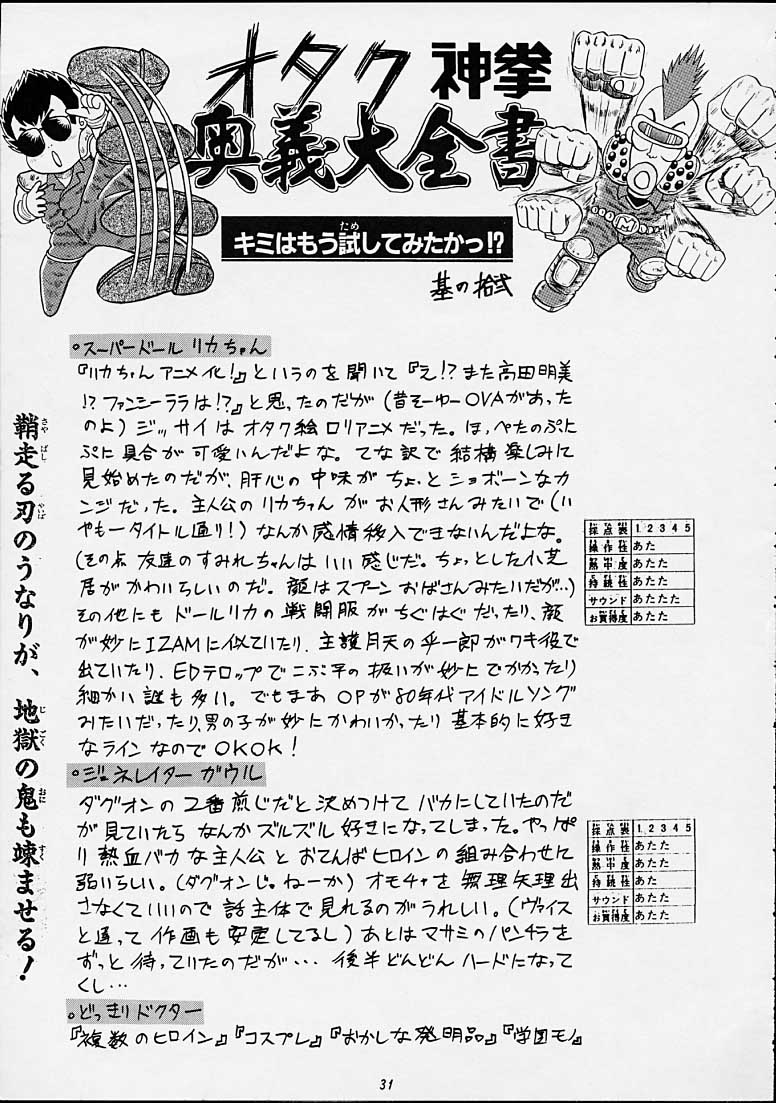 オタク 神拳
奥義大全書
キミはもう試してみたかっ!?
基の拾弐
鞘走る刃のうなりが、地獄の鬼も竦ませる!
。スーパードール リカちゃん
『リカちゃん アニメ化!』というのを聞いて『え!? また高田明美
!? ファンシーララは!?』と思ったのだが (昔そーゆーOVAがあった
のよ) ジッサイは オタク絵ロリアニメだった。ほっぺたのぷに
ぷに具合が可愛いんだよな。てな訳で結構楽しみに
見始めたのだが、肝心の中味がちょっとショボーンなカ
ンジだった。主人公のリカちゃんがお人形さんみたいで(い
やもータイトル通り!) なんか感情移入できないんだよな。
(その点 友達のすみれちゃんはいい感じだ。ちょっとした小芝
居がかわいらしいのだ。顔はスプーンおばさんみたいだが…)
その他にもドールリカの戦闘服がちぐはぐだったり、顔
が妙にIZAMに似ていたり、主護月天の乎一郎がワキ役で
出ていたり、EDテロップでこぶ平の扱いが妙にでかかったり
細かい謎も多い。でもまあ OPが80年代アイドルソング
みたいだったり、男の子が妙にかわいかったり 基本的に好き
なラインなのでOKOK!
採点表 1 2 3 4 5
操作性 あた
熱中度 あたた
持続性 あた
サウンド あたたた
お買得度 あたた
。ジェネレイター ガウル
ダグオンの二番煎じだと決めつけてバカにしていたのだ
が見ていたらなんかズルズル好きになってしまった。やっぱ
り熱血バカな主人公とおてんばヒロインの組み合わせに
弱いらしい。(ダグオンじゃねーか) オモチャを無理矢理出
さなくていいので話主体で見れるのがうれしい。(ヴァイス
と違って作画も安定してるし) あとはマサミのパンチラを
ずっと待っていたのだが… 後半どんどんハードになって
くし…
採点表 1 2 3 4 5
操作性 あたた
熱中度 あたた
持続性 あた
サウンド あた
お買得度 あたた
。どっきりドクター
『複数のヒロイン』『コスプレ』『おかしな発明品』『学園モノ』
31